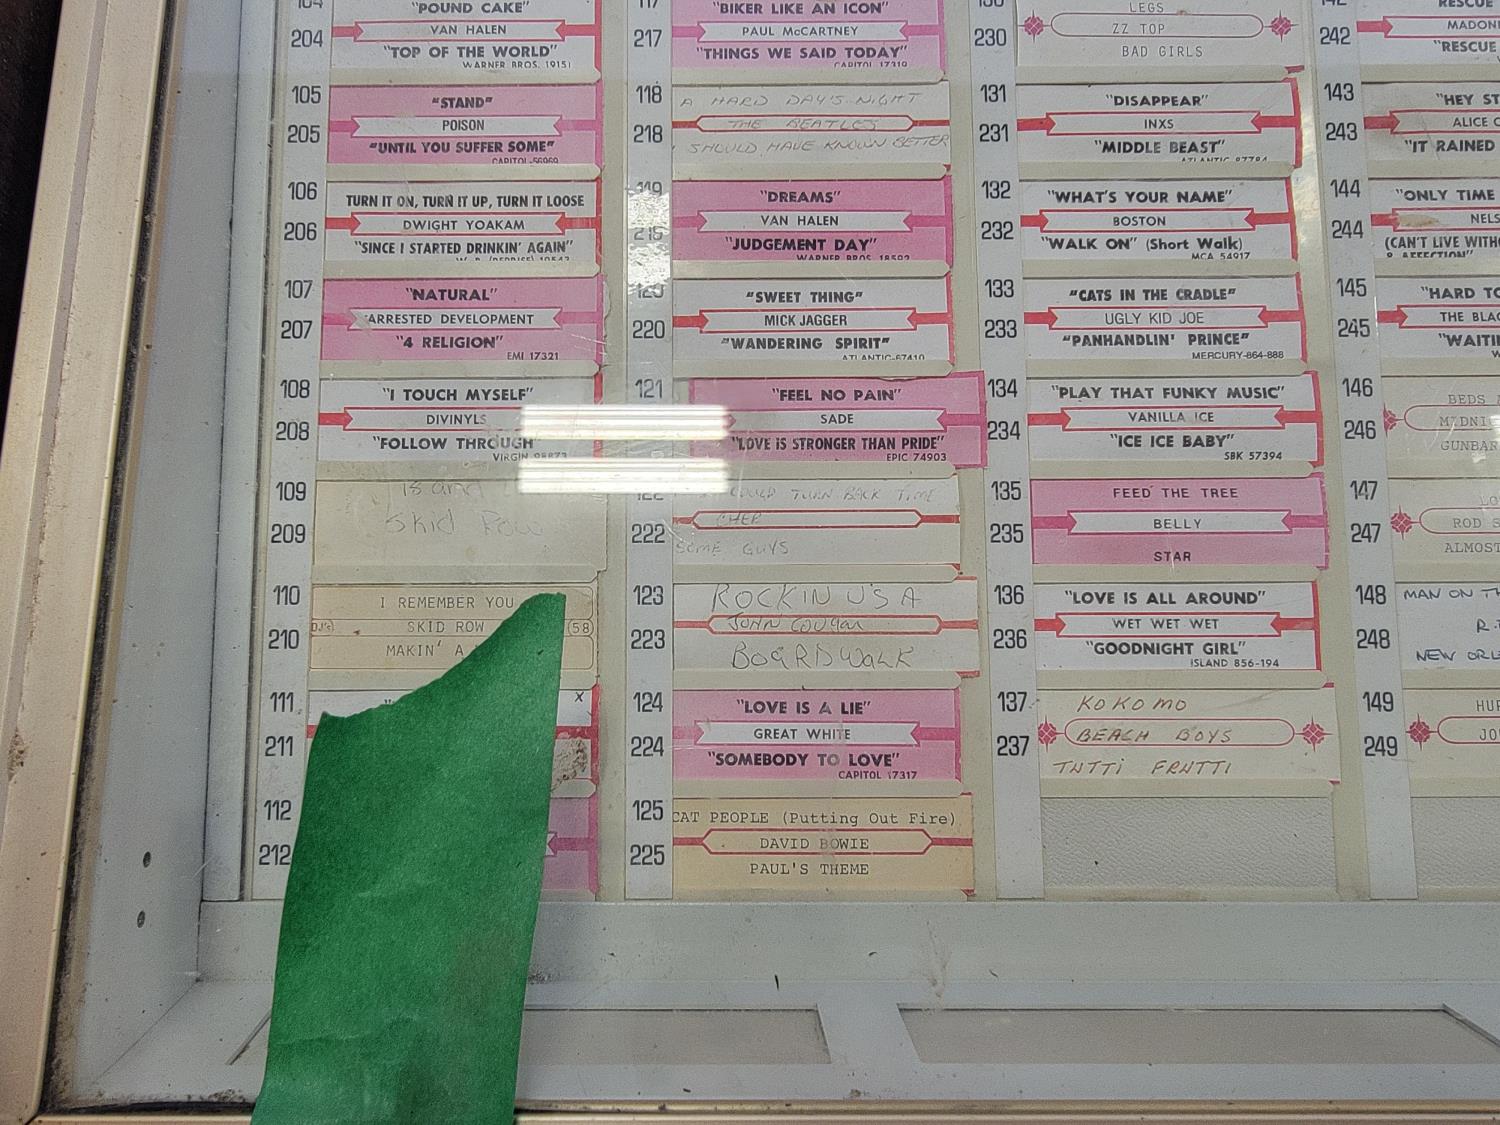 204
"POUND CAKE"
VAN HALEN
"TOP OF THE WORLD"
WARNER BROS. 19151
105
205
"STAND"
POISON
"UNTIL YOU SUFFER SOME"
CAPITOL-56969
106
206
TURN IT ON, TURN IT UP, TURN IT LOOSE
DWIGHT YOAKAM
"SINCE I STARTED DRINKIN' AGAIN"
107
207
"NATURAL"
ARRESTED DEVELOPMENT
"4 RELIGION"
EMI 17321
108
208
"I TOUCH MYSELF"
DIVINYLS
"FOLLOW THROUGH"
VIRGIN
109
209
Skid Row
110
210
I REMEMBER YOU
DJ's
SKID ROW
(58)
MAKIN' A
111
211
X
112
212
217
"BIKER LIKE AN ICON"
PAUL McCARTNEY
"THINGS WE SAID TODAY"
CAPITOL 17319
118
218
A HARD DAY'S NIGHT
THE BEATLES
SHOULD HAVE KNOWN BETTER
119
"DREAMS"
VAN HALEN
"JUDGEMENT DAY"
WARNER BROS. 18592
220
"SWEET THING"
MICK JAGGER
"WANDERING SPIRIT"
ATLANTIC-67410
121
"FEEL NO PAIN"
SADE
"LOVE IS STRONGER THAN PRIDE"
EPIC 74903
122
222
COULD TURN BACK TIME
CHER
SOME GUYS
123
223
ROCKIN USA
JOHN COUGAR
BOARDWALK
124
224
"LOVE IS A LIE"
GREAT WHITE
"SOMEBODY TO LOVE"
CAPITOL 17317
125
225
CAT PEOPLE (Putting Out Fire)
DAVID BOWIE
PAUL'S THEME
230
LEGS
ZZ TOP
BAD GIRLS
131
231
"DISAPPEAR"
INXS
"MIDDLE BEAST"
ATLANTIC 87784
132
232
"WHAT'S YOUR NAME"
BOSTON
"WALK ON" (Short Walk)
MCA 54917
133
233
"CATS IN THE CRADLE"
UGLY KID JOE
"PANHANDLIN' PRINCE"
MERCURY-864-888
134
234
"PLAY THAT FUNKY MUSIC"
VANILLA ICE
"ICE ICE BABY"
SBK 57394
135
235
FEED THE TREE
BELLY
STAR
136
236
"LOVE IS ALL AROUND"
WET WET WET
"GOODNIGHT GIRL"
ISLAND 856-194
137
237
KOKOMO
BEACH BOYS
TUTTI FRUTTI
242
RESCUE
MADON
"RESCUE
143
243
"HEY ST
ALICE C
"IT RAINED
144
244
"ONLY TIME
NELS
(CAN'T LIVE WITHO
& AFFECTION"
145
245
"HARD TO
THE BLAC
"WAITIN
146
246
BEDS
MIDNIG
GUNBAR
147
247
LO
ROD S
ALMOST
148
248
MAN ON TH
R.
NEW ORLE
149
249
HUR
JO